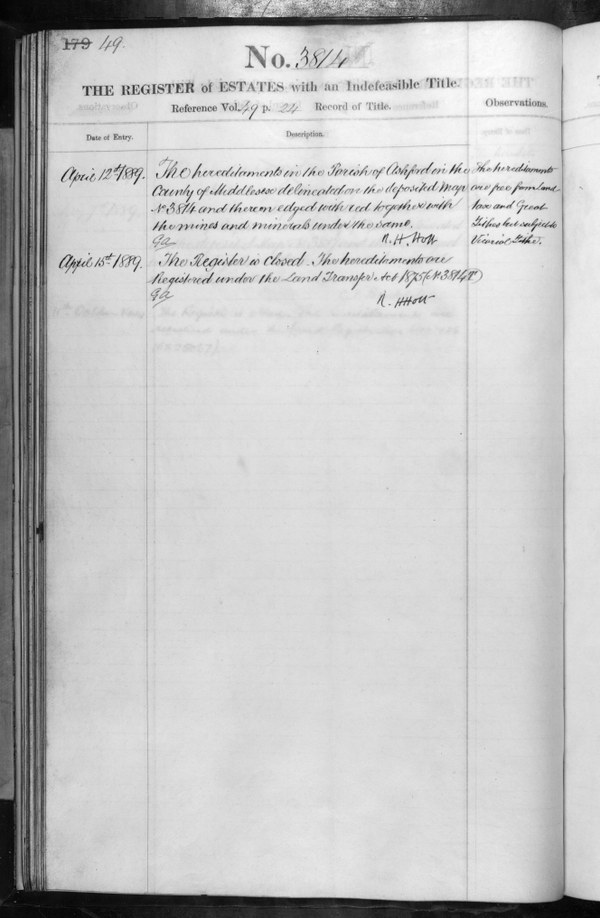 179 49.
No. 3814
THE REGISTER of ESTATES with an Indefeasible Title.
Reference Vol. 49 p. 24 Record of Title.
Observations.
Date of Entry.
Description.
April 12th 1889.
The hereditaments in the Parish of Ashford in the
County of Middlesex delineated on the deposited Map
No 3814 and therein edged with red together with
the mines and minerals under the same.
R. H. Holt
The hereditaments
are free from Land
tax and Great
Tithes but subject to
Vicarial Tithe.
April 15th 1889.
The Register is closed. The hereditaments are
Registered under the Land Transfer Act 1875
R. H Holt